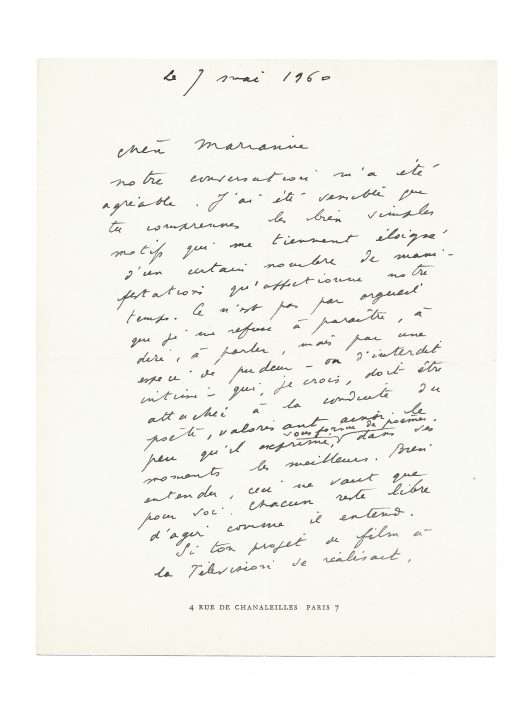 Le 7 mai 1960
Chère Marianne
notre conversation m'a été
agréable. J'ai été sensible que
tu comprennes les bien simples
motifs qui me tiennent éloigné
d'un certain nombre de mani-
festations qu'affectionne notre
temps. Ce n'est pas par orgueil
que je me refuse à paraître, à
dire, à parler, mais par une
espèce de pudeur - ou d'interdit
intimé - qui, je crois, doit être
attachée à la conduite du
poète, valorisant ainsi le
sous forme de poèmes,
peu qu'il exprime, dans ses
moments les meilleurs. Bien
entendu, ceci ne vaut que
pour soi. Chacun reste libre
d'agir comme il entend.
Si ton projet de film à
la Télévision se réalisait,
4 RUE DE CHANALEILLES PARIS 7